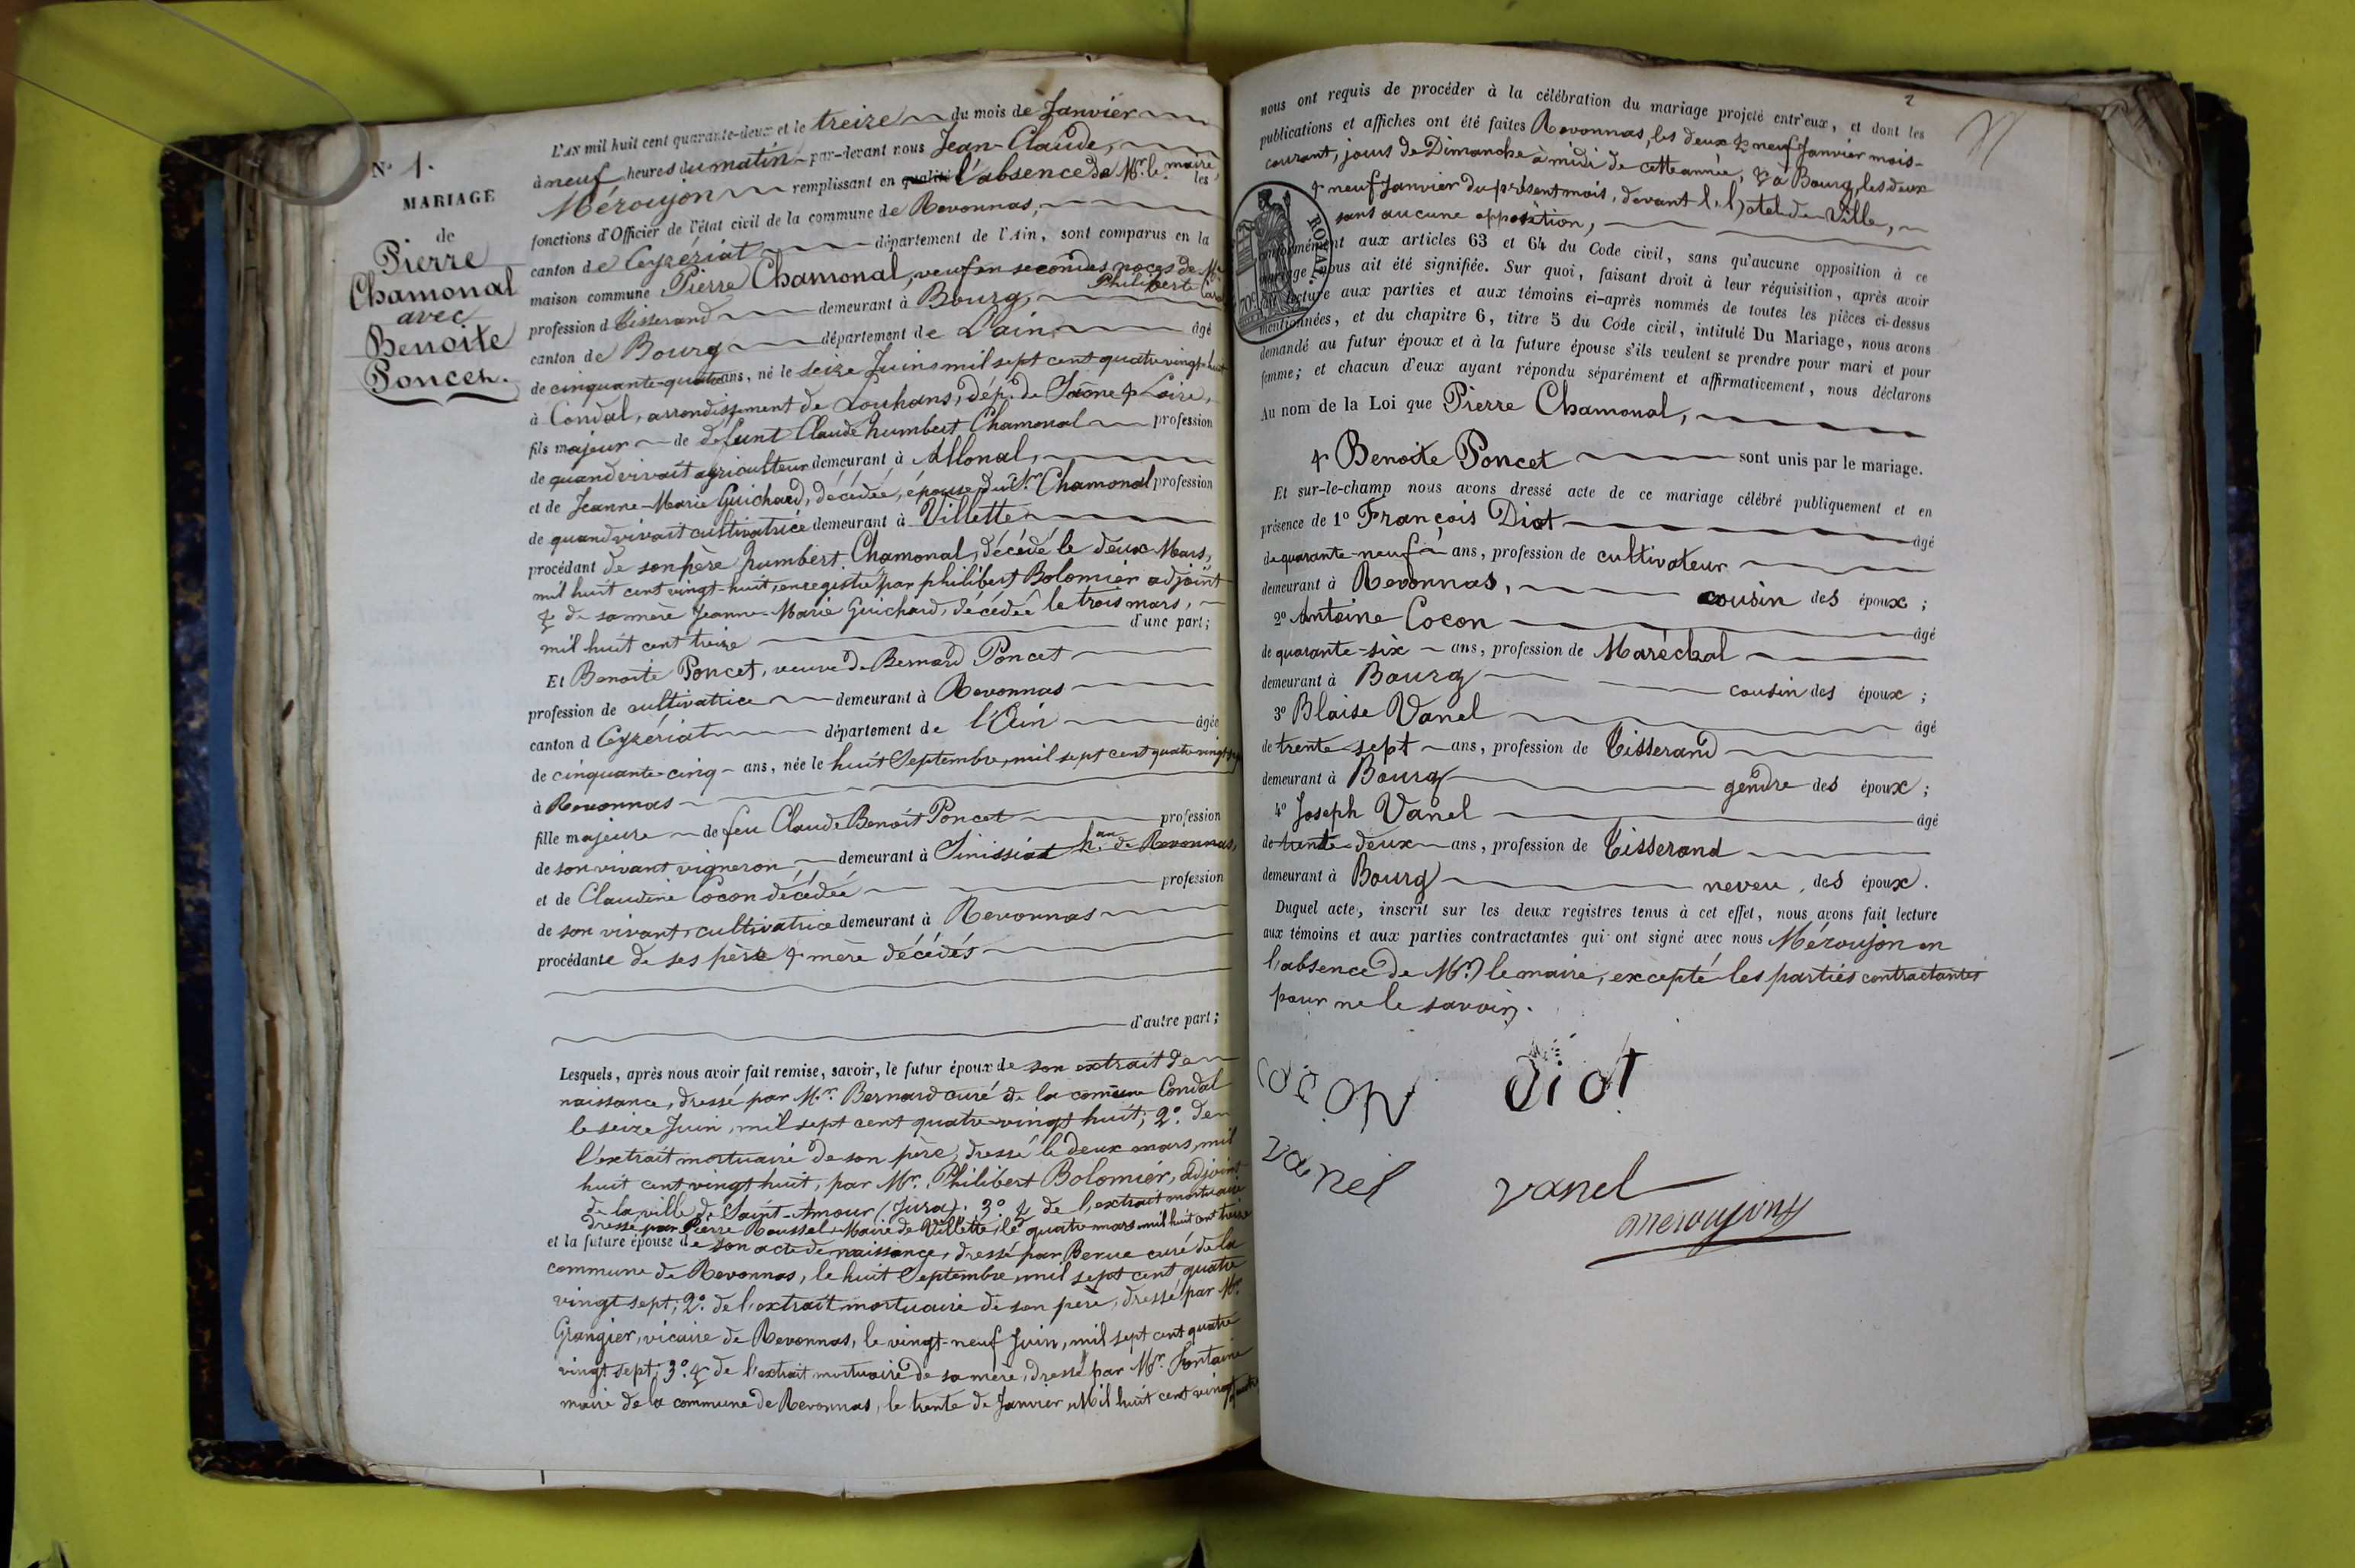 N° 1.
MARIAGE
de
Pierre
Chamonal
avec
Benoite
Poncet.
L'AN mil huit cent quarante-deux et le treize du mois de Janvier
à neuf heures du matin par-devant nous Jean-Claude,
Méroujon remplissant en qualité l'absence de Mr. le maire, les
fonctions d'Officier de l'état civil de la commune de Revonnas,
canton de Ceyzériat département de l'Ain, sont comparus en la
maison commune Pierre Chamonal, veuf en secondes noces de
Philiberte
profession d Tisserand demeurant à Bourg,
canton de Bourg département de L'ain, âgé
de cinquante-quatre ans, né le seize Juins mil sept cent quatre vingt-huit
à Condal, arrondissement de Louhans, dép. de Saône & Loire,
fils majeur de défunt Claude humbert Chamonal profession
de quand vivait agriculteur demeurant à Allonal,
et de Jeanne-Marie Guichard, décédée, épouse dud. Sr. Chamonal profession
de quand vivait cultivatrice demeurant à Villette
procédant de son père humbert Chamonal, décédé le deux Mars,
mil huit cent vingt-huit, enregistré par philibert Bolomier adjoint
& de sa mère Jeanne-Marie Guichard, décédée le trois mars,
mil huit cent treize d'une part;
Et Benoite Poncet, veuve de Bernard Poncet
profession de cultivatrice demeurant à Revonnas
canton d Ceyzériat département de l'Ain âgée
de cinquante-cinq ans, née le huit Septembre, mil sept cent quatre vingt sept
à Revonnas
fille majeure de feu Claude Benoit Poncet profession
de son vivant vigneron, demeurant à Sinissiat h.au de Revonnas,
et de Claudine Cocon décédée profession
de son vivant cultivatrice demeurant à Revonnas
procédante de ses père & mère décédés
d'autre part;
Lesquels, après nous avoir fait remise, savoir, le futur époux de son extrait de
naissance, dressé par Mr. Bernard curé de la comune Condal
le seize Juin, mil sept cent quatre-vingt huit; 2.° de
l'extrait mortuaire de son père, dressé le deux mars, mil
huit cent vingt huit, par Mr. Philibert Bolomier, adjoint
de la ville de Saint-Amour (Jura). 3.° & de l'extrait mortuaire
dressé par Pierre Roussel Maire de Villette, le quatre mars mil huit cent treize
et la future épouse de son acte de naissance, dressé par Berue curé de la
commune de Revonnas, le huit Septembre mil sept cent quatre
vingt sept; 2.° de l'extrait mortuaire de son père, dressé par Mr.
Grangier, vicaire de Revonnas, le vingt-neuf Juin, mil sept cent quatre
vingt sept; 3.° & de l'extrait mortuaire de sa mère, dressé par Mr. Fontaine
maire de la commune de Revonnas, le trente de Janvier, Mil huit cent vingt
2
nous ont requis de procéder à la célébration du mariage projeté entr'eux, et dont les
publications et affiches ont été faites Revonnas, les deux & neuf Janvier mois
courant, jours de Dimanche à midi de cette année, & à Bourg, les deux
& neuf Janvier du présent mois, devant l'hotel de Ville,
sans aucune opposition,
conformément aux articles 63 et 64 du Code civil, sans qu'aucune opposition à ce
mariage nous ait été signifiée. Sur quoi, faisant droit à leur réquisition, après avoir
lecture aux parties et aux témoins ci-après nommés de toutes les pièces ci-dessus
mentionnées, et du chapitre 6, titre 5 du Code civil, intitulé Du Mariage, nous avons
demandé au futur époux et à la future épouse s'ils veulent se prendre pour mari et pour
femme; et chacun d'eux ayant répondu séparément et affirmativement, nous déclarons
Au nom de la Loi que Pierre Chamonal,
& Benoite Poncet sont unis par le mariage.
Et sur-le-champ nous avons dressé acte de ce mariage célébré publiquement et en
présence de 1° François Diot âgé
de quarante-neuf ans, profession de cultivateur
demeurant à Revonnas, cousin des époux;
2° Antoine Cocon âgé
de quarante-six ans, profession de Maréchal
demeurant à Bourg cousin des époux;
3° Blaise Vanel âgé
de trente sept ans, profession de Tisserand
demeurant à Bourg gendre des époux;
4° Joseph Vanel âgé
de trente-deux ans, profession de Tisserand
demeurant à Bourg neveu des époux.
Duquel acte, inscrit sur les deux registres tenus à cet effet, nous avons fait lecture
aux témoins et aux parties contractantes qui ont signé avec nous Méroujon en
l'absence de Mr. le maire, excepté les parties contractantes
pour ne le savoir.
cocon diot
vanel vanel
meroujon
ROYAL.